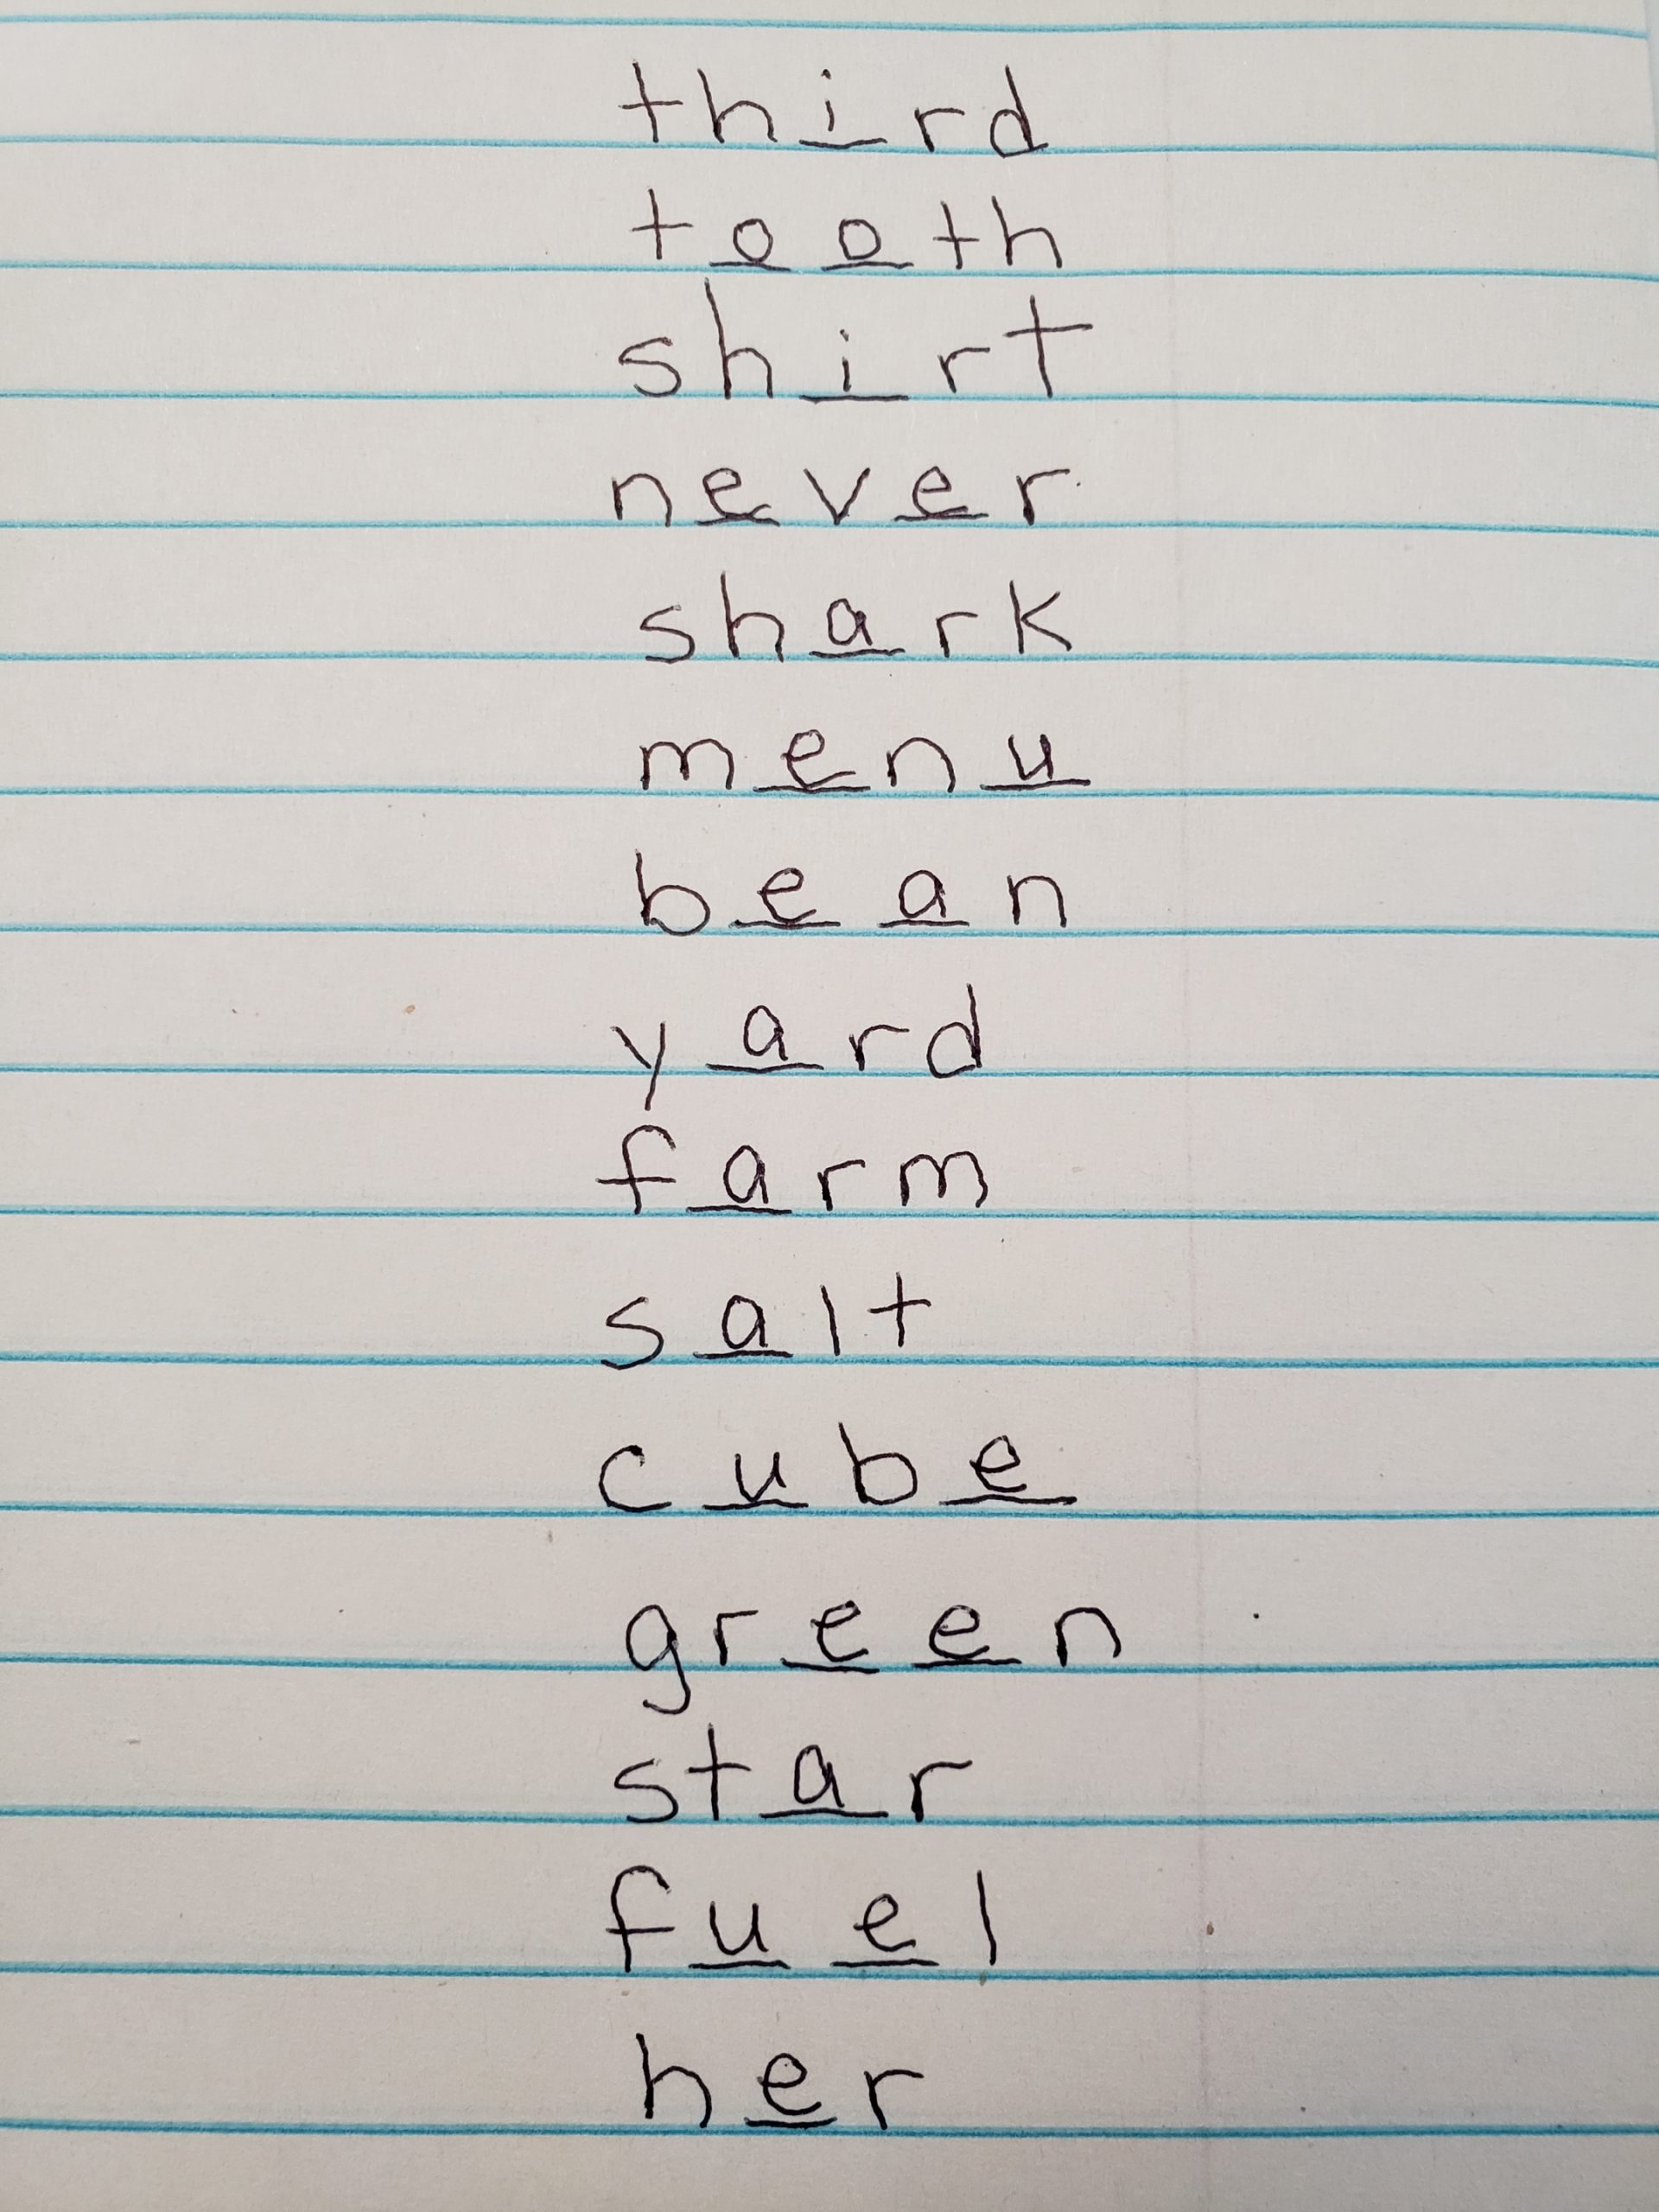 third
tooth
shirt
never
shark
menu
bean
yard
farm
salt
cube
green
star
fuel
her